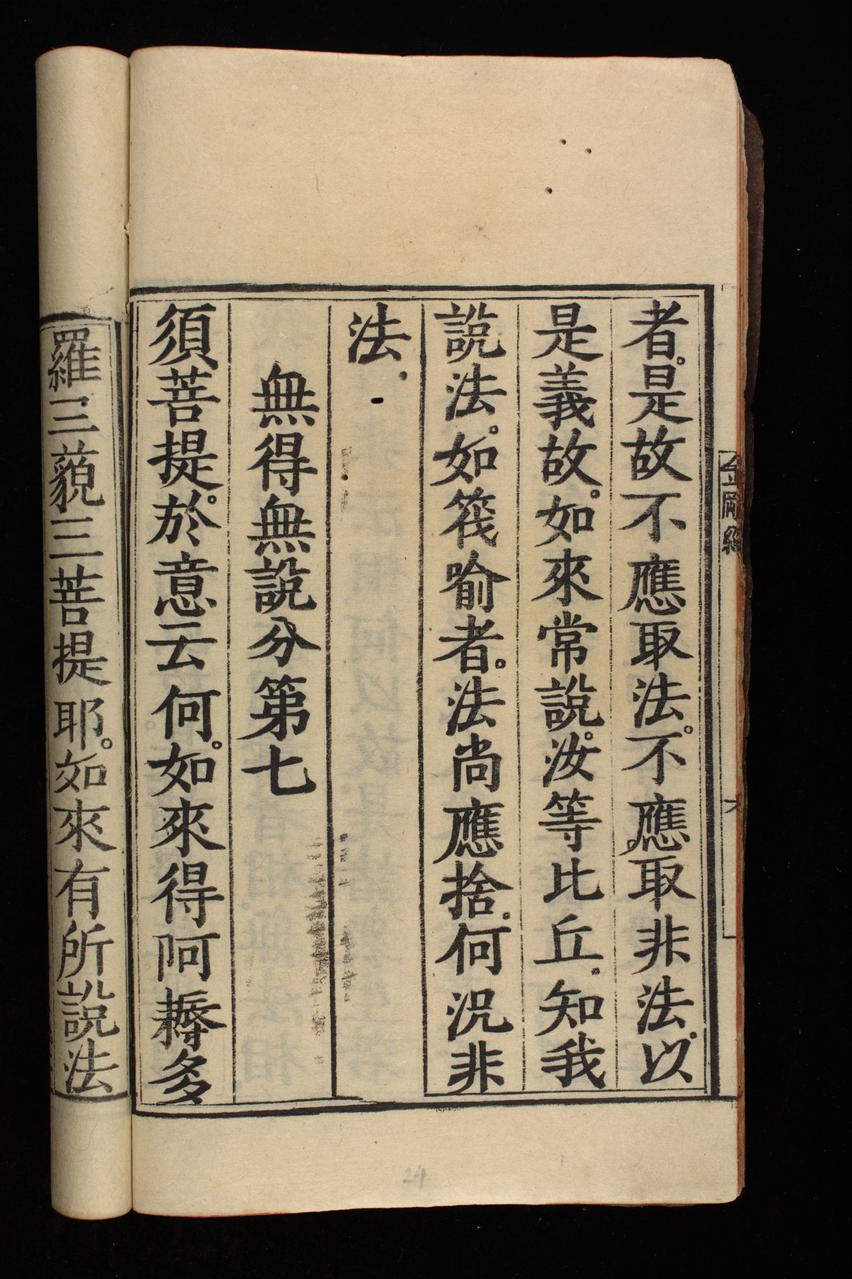 者。是故不應取法。不應取非法。以
是義故。如來常說。汝等比丘。知我
說法。如筏喻者。法尚應捨。何況非
法。
無得無說分第七
須菩提。於意云何。如來得阿耨多
羅三藐三菩提耶。如來有所說法
金剛經
24